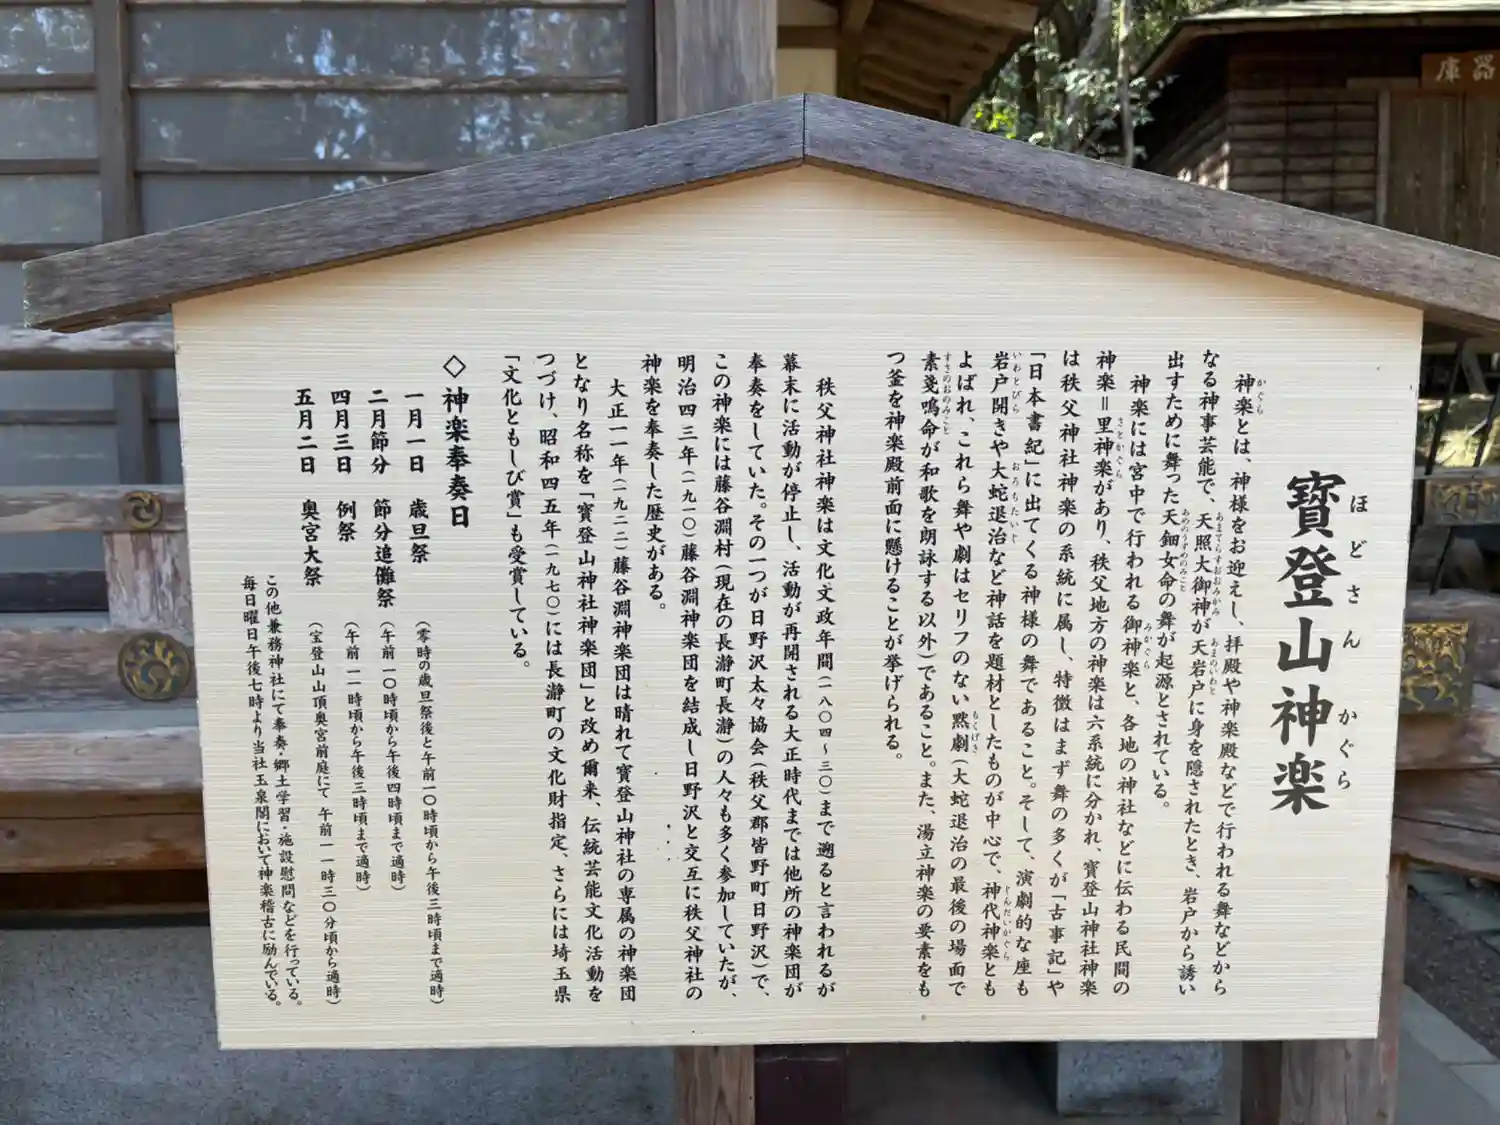 器庫
寶登山神楽
ほどさん かぐら
神楽とは、神様をお迎えし、拝殿や神楽殿などで行われる舞などから
なる神事芸能で、天照大御神が天岩戸に身を隠されたとき、岩戸から誘い
出すために舞った天鈿女命の舞が起源とされている。
神楽には宮中で行われる御神楽と、各地の神社などに伝わる民間の
神楽＝里神楽があり、秩父地方の神楽は六系統に分かれ、寶登山神社神楽
は秩父神社神楽の系統に属し、特徴はまず舞の多くが「古事記」や
「日本書紀」に出てくる神様の舞であること。そして、演劇的な座も
岩戸開きや大蛇退治など神話を題材としたものが中心で、神代神楽とも
よばれ、これら舞や劇はセリフのない黙劇（大蛇退治の最後の場面で
素戔嗚命が和歌を朗詠する以外）であること。また、湯立神楽の要素をも
つ釜を神楽殿前面に懸けることが挙げられる。
秩父神社神楽は文化文政年間（一八〇四～三〇）まで遡ると言われるが
幕末に活動が停止し、活動が再開される大正時代までは他所の神楽団が
奉奏をしていた。その一つが日野沢太々協会（秩父郡皆野町日野沢）で、
この神楽には藤谷淵村（現在の長瀞町長瀞）の人々も多く参加していたが、
明治四三年（一九一〇）藤谷淵神楽団を結成し日野沢と交互に秩父神社の
神楽を奉奏した歴史がある。
大正一一年（一九二二）藤谷淵神楽団は晴れて寶登山神社の専属の神楽団
となり名称を「寶登山神社神楽団」と改め爾来、伝統芸能文化活動を
つづけ、昭和四五年（一九七〇）には長瀞町の文化財指定、さらには埼玉県
「文化ともしび賞」も受賞している。
◇神楽奉奏日
一月一日 歳旦祭 （零時の歳旦祭後と午前一〇時頃から午後三時頃まで適時）
二月節分 節分追儺祭 （午前一〇時頃から午後四時頃まで適時）
四月三日 例祭 （午前一一時頃から午後三時頃まで適時）
五月二日 奥宮大祭 （宝登山山頂奥宮前庭にて 午前一一時三〇分頃から適時）
この他兼務神社にて奉奏・郷土学習・施設慰問などを行っている。
毎日曜日午後七時より当社玉泉閣において神楽稽古に励んでいる。